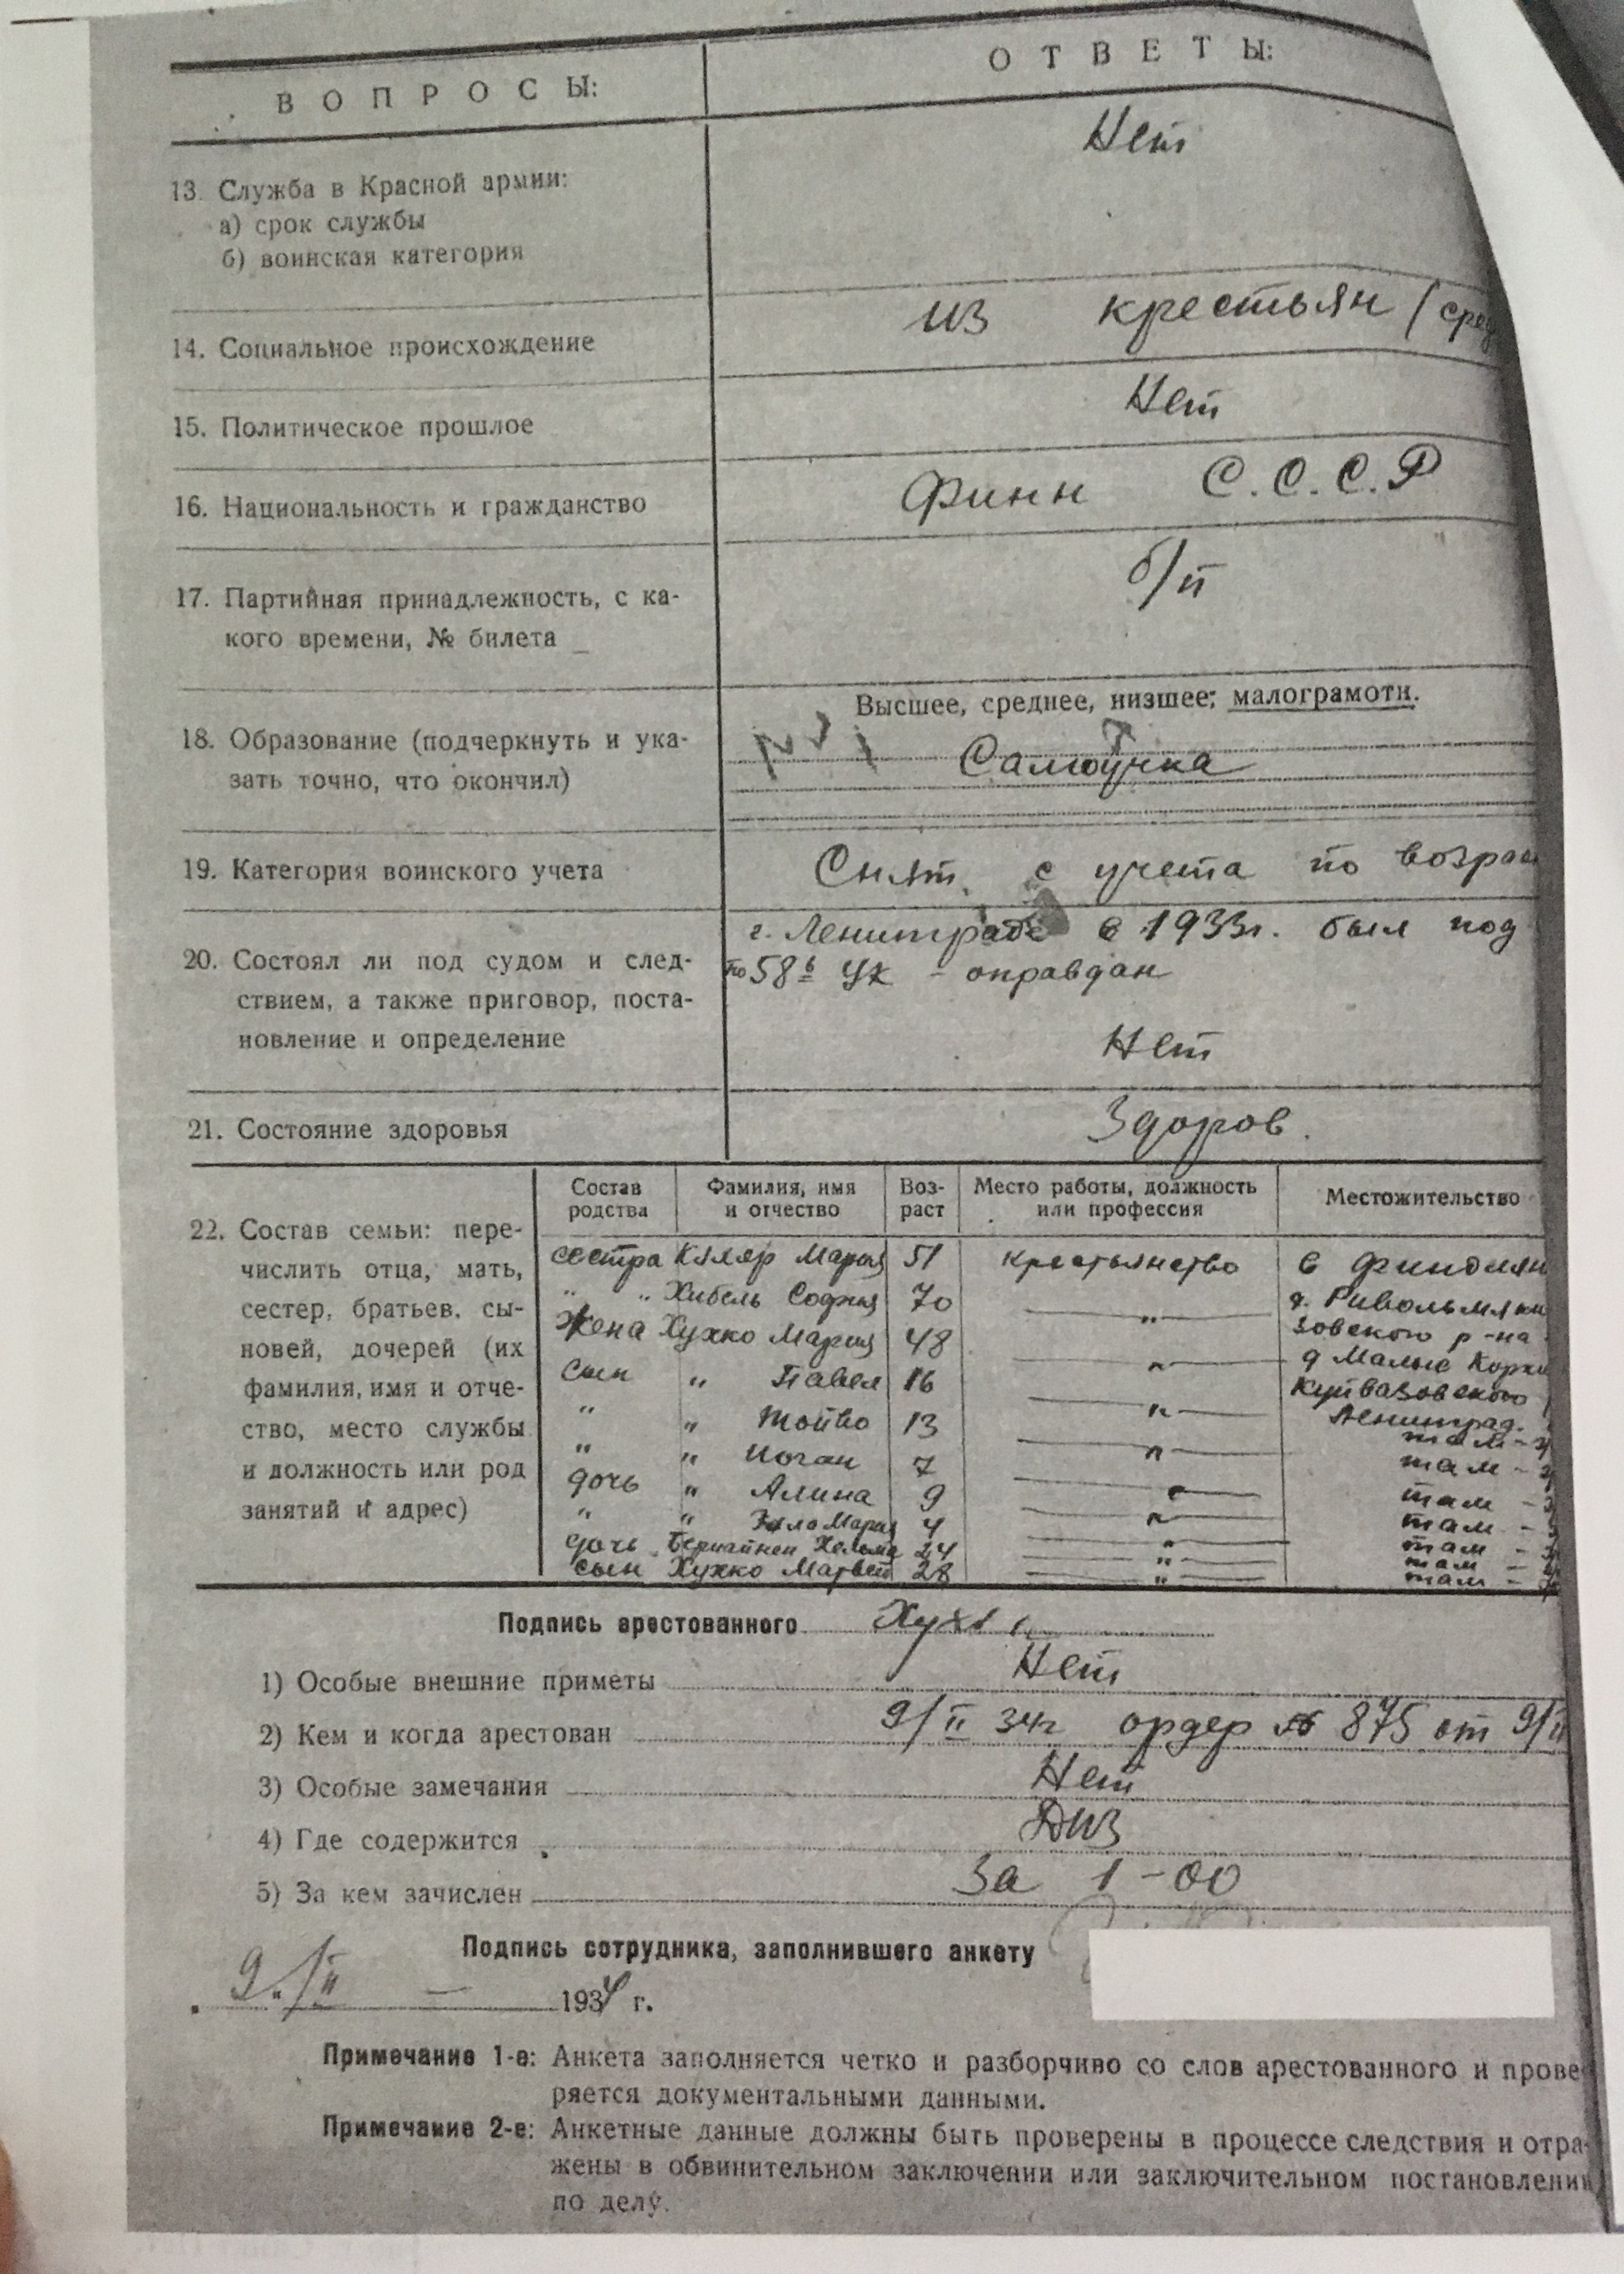 ВОПРОСЫ:
ОТВЕТЫ:
13. Служба в Красной армии:
а) срок службы
б) воинская категория
Нет
14. Социальное происхождение
из крестьян (серед
15. Политическое прошлое
Нет
16. Национальность и гражданство
Финн С.С.С.Р
17. Партийная принадлежность, с ка-
кого времени, № билета
б/п
18. Образование (подчеркнуть и ука-
зать точно, что окончил)
Высшее, среднее, низшее; малограмотн.
Самоучка
19. Категория воинского учета
Снят с учета по возрас
20. Состоял ли под судом и след-
ствием, а также приговор, поста-
новление и определение
г. Ленинграде в 1933г. был под
по 58 6 УК - оправдан
Нет
21. Состояние здоровья
Здоров.
22. Состав семьи: пере-
числить отца, мать,
сестер, братьев, сы-
новей, дочерей (их
фамилия, имя и отче-
ство, место службы
и должность или род
занятий и адрес)
Состав родства
Фамилия, имя и отчество
Воз-раст
Место работы, должность или профессия
Местожительство
сестра Кляр Мария 51 крестьянство в Финлян
" " Хибель София 70 — " —
Жена Хухко Мария 48 — " — зовского р-на
сын " Павел 16 — " — д Малые Корки
Куйвазовского
" " Тойво 13 — " — Ленинград.
" " Иоган 7 — " — там -
дочь " Алина 9 — " — там -
" " Мария 4 — " — там -
дочь Хельма 24 — " — там -
сын Хухко Матвей 28 — " — там -
Подпись арестованного
1) Особые внешние приметы Нет
2) Кем и когда арестован 9/II 34г ордер № 875 от 9/II
3) Особые замечания Нет
4) Где содержится ДПЗ
5) За кем зачислен За 1-ОО
Подпись сотрудника, заполнившего анкету
9./II — 1934 г.
Примечание 1-е: Анкета заполняется четко и разборчиво со слов арестованного и прове-
ряется документальными данными.
Примечание 2-е: Анкетные данные должны быть проверены в процессе следствия и отра-
жены в обвинительном заключении или заключительном постановлении
по делу.